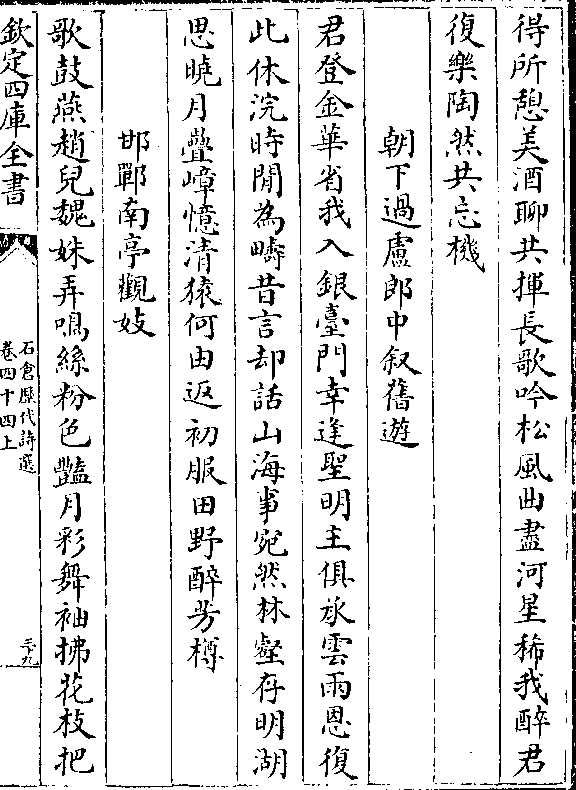 得所憩美酒聊共揮長歌吟松風曲盡河星稀我醉君
復樂陶然共忘機
朝下過盧郎中叙舊遊
君登金華省我入銀臺門幸逢聖明主俱承雲雨恩復
此休浣時閒為疇昔言却話山海事宛然林壑存明湖
思曉月疊嶂憶清猿何由返初服田野醉芳樽
邯鄲南亭觀妓
歌鼓燕趙兒魏姝弄鳴絲粉色豔月彩舞袖拂花枝把
欽定四庫全書
石倉歷代詩選
卷四十四上
三十九